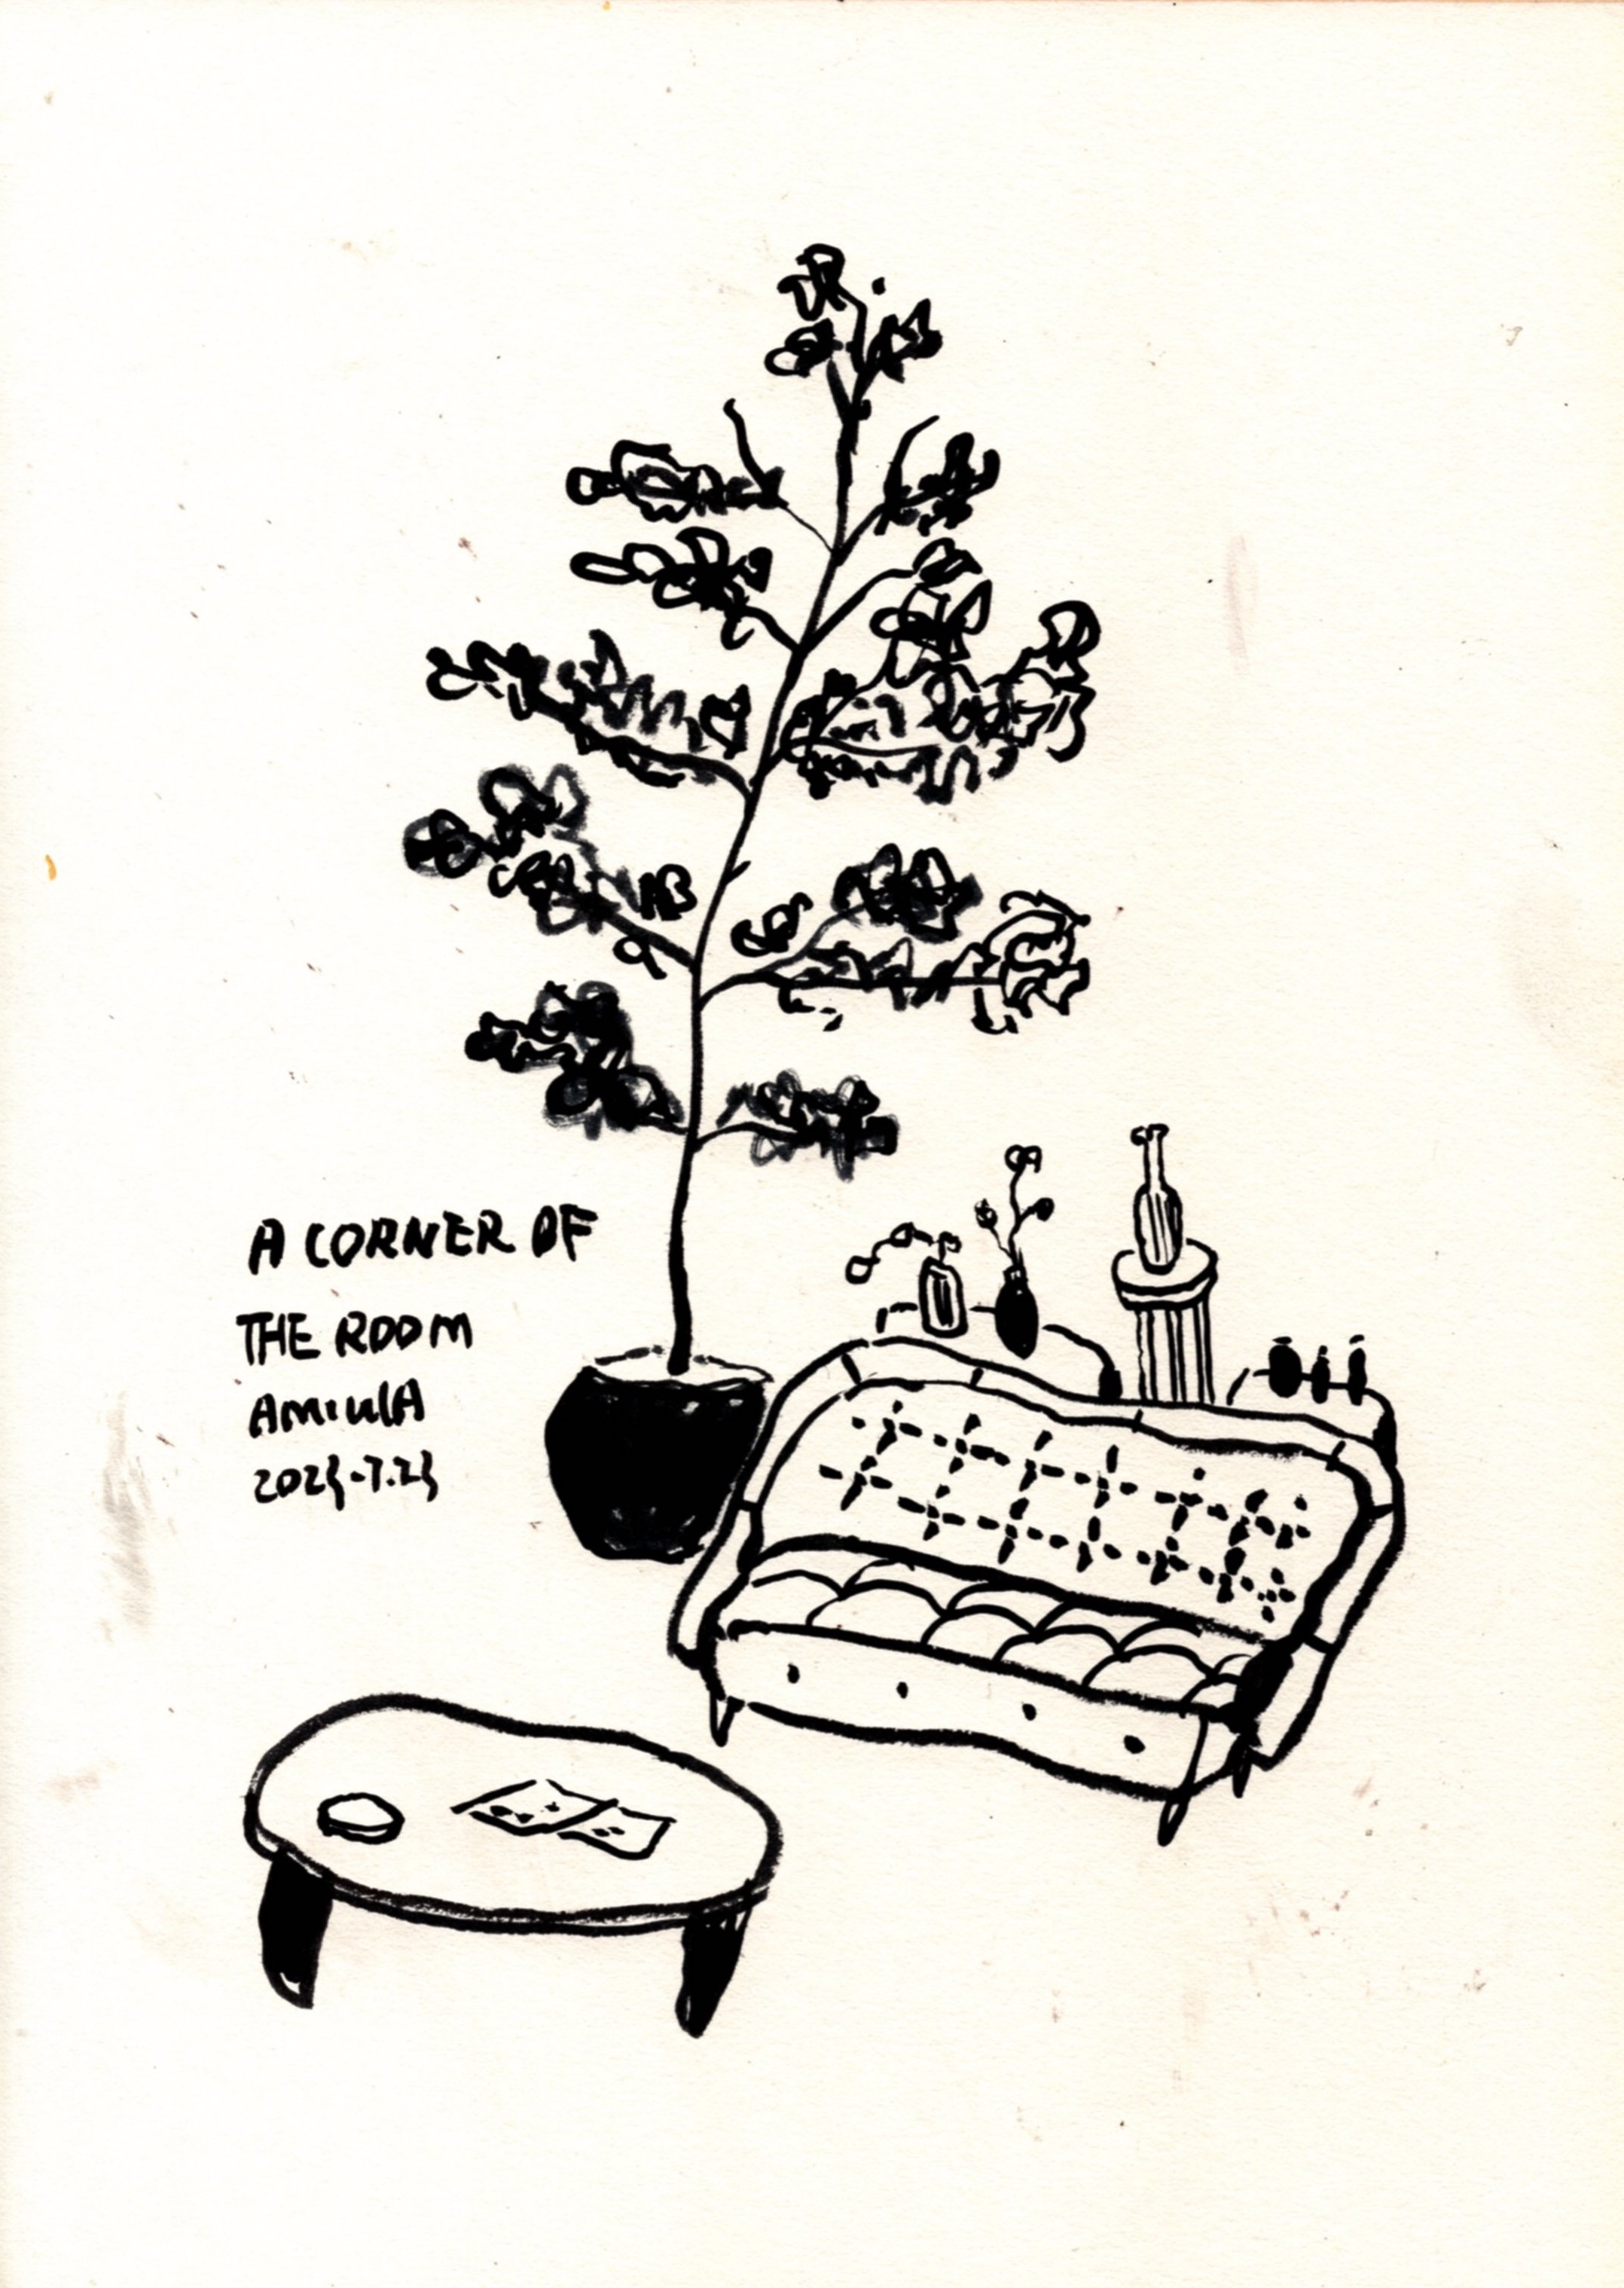 A CORNER OF
THE ROOM
AMIULA
2023-7.23